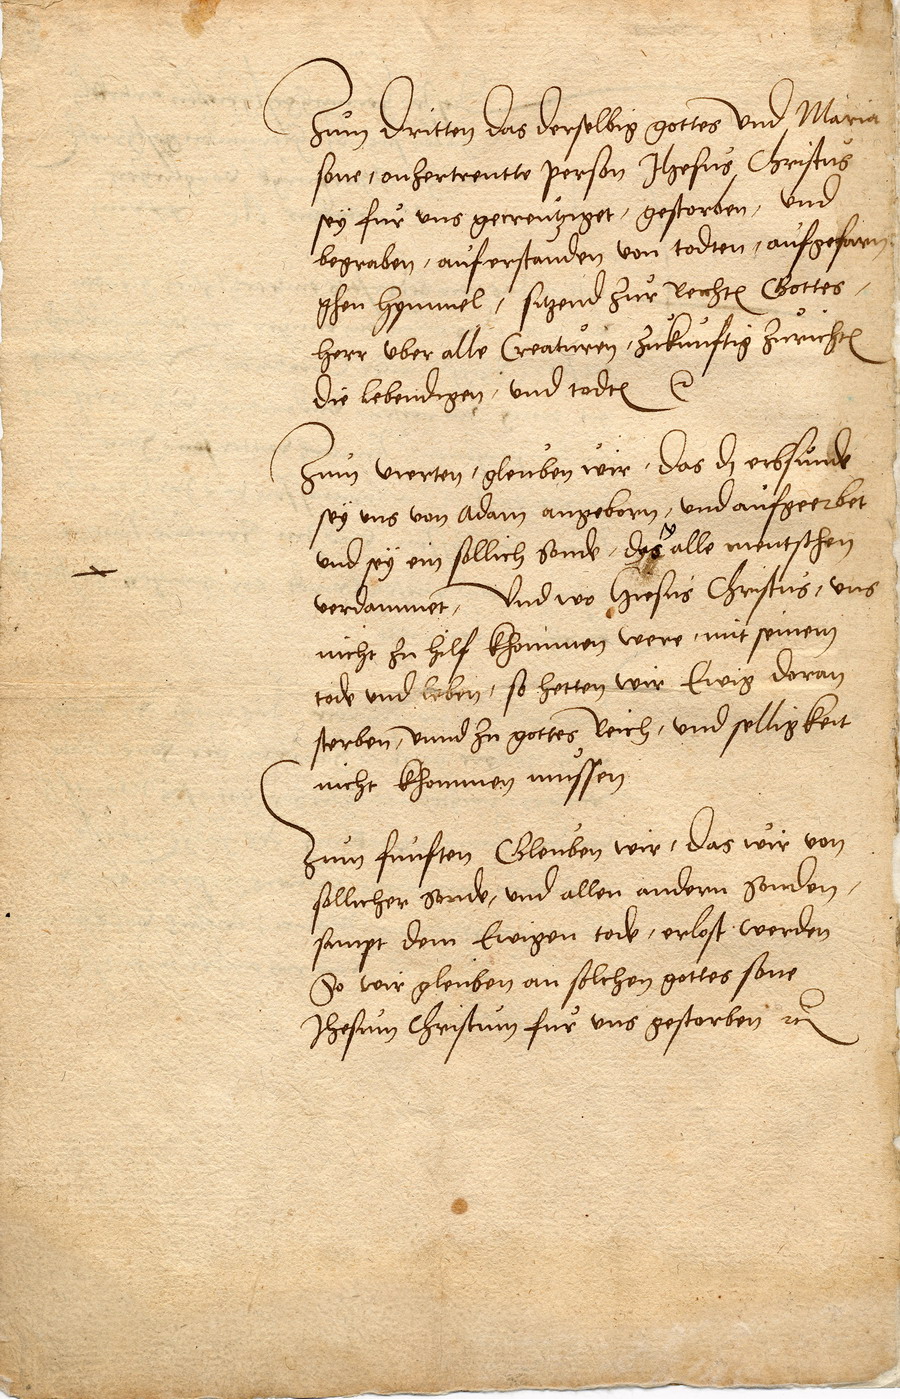 Zum dritten das derselbig gottes vnd Maria
sone, onzertrentte person Jhesus Christus
sey fur vns gecreutziget, gestorben, vnd
begraben, auferstanden von todten, aufgefarn
ghen hymmel, sitzend zur Rechten Gottes,
herr vber alle Creaturen, zukunftig zurichten
die lebendigen, vnd todten
Zum vierten, gleuben wir, das di erbsunde
sey vns von Adam angeborn, vnd aufgeerbet
vnd sey ein sollich Sonde, das alle mentschen
verdammet, Vnd wo Jhesus Christus, vns
nicht zu hilf khommen were, mit seinem
tode vnd leben, so hetten wir Ewig doran
sterben, vnnd zu gottes Reich, vnd selligkeit
nicht khommen mussen
Zum funften Gleuben wir, das wir von
sollicher Sonde, vnd allen andern Sonden,
sampt dem Ewigen tode, erlost werden
So wir gleuben an solchen gottes sone
Jhesum Christum fur vns gestorben etc